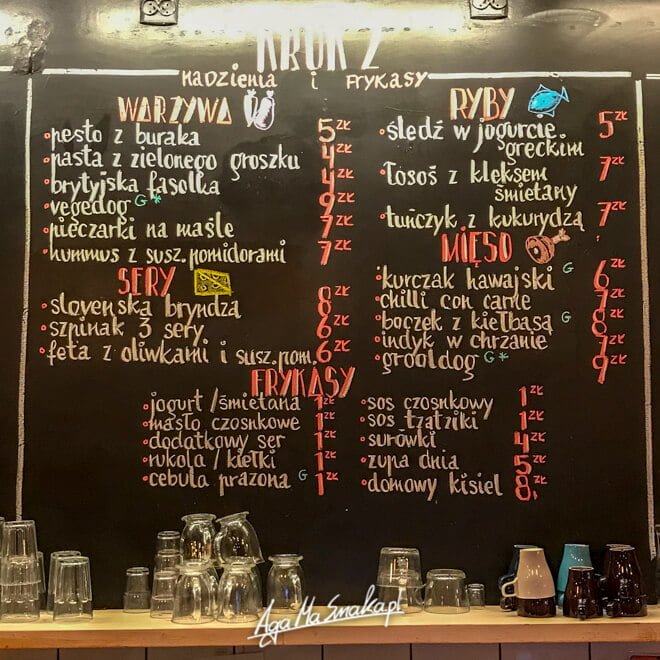 KROK 2
nadzienia i frykasy
WARZYWA
•pesto z buraka 5 zł
•pasta z zielonego groszku 4 zł
•brytyjska fasolka 4 zł
•vegedog G* 9 zł
•pieczarki na maśle 7 zł
•hummus z susz.pomidorami 7 zł
SERY
•slovenska bryndza 8 zł
•szpinak 3 sery 6 zł
•feta z oliwkami i susz.pom. 6 zł
RYBY
•śledź w jogurcie greckim 5 zł
•łosoś z kleksem śmietany 7 zł
•tuńczyk z kukurydzą 7 zł
MIĘSO
•kurczak hawajski G 6 zł
•chilli con carne 7 zł
•boczek z kiełbasą G 8 zł
•indyk w chrzanie 7 zł
•grooldog G* 9 zł
FRYKASY
•jogurt / śmietana 1 zł
•masło czosnkowe 1 zł
•dodatkowy ser 1 zł
•rukola / kiełki 1 zł
•cebula prażona G 1 zł
•sos czosnkowy 1 zł
•sos tzatziki 1 zł
•surówki 4 zł
•zupa dnia 5 zł
•domowy kisiel 8,
AgaMaSmaka.pl